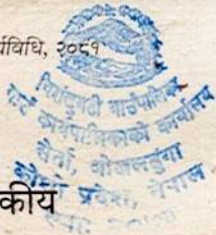 र्यविधि, २०८१
चिशंखुगढी गाउँपालिका
गाउँ कार्यपालिकाको कार्यालय
ओखलढुंगा
प्रदेश, नेपाल
कीय